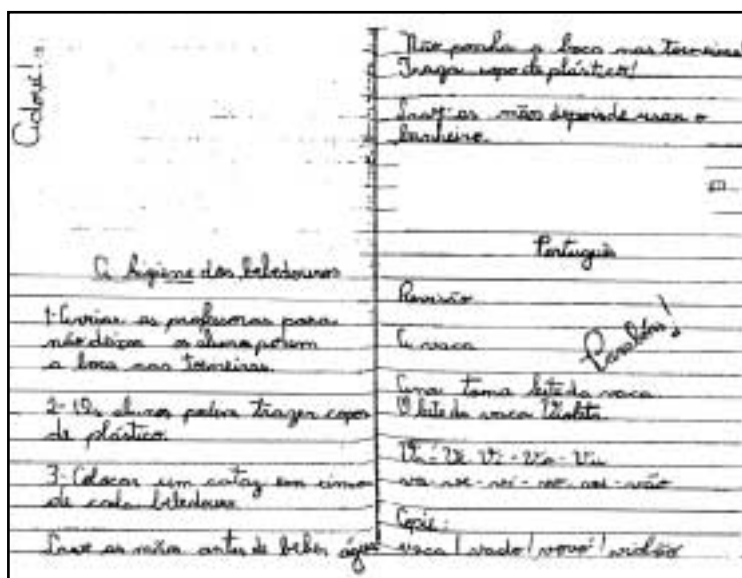 Adorei!
A higiene dos bebedouros
1- Avisar as professoras para
não deixar os aluno porem
a boca nas torneiras.
2- Os alunos podem trazer copos
de plástico.
3- Colocar um cataz em cima
de cada bebedouro
Lave as mãos antes de beber água
Não ponha a boca nas torneiras!
Traga copo de plástico!
Lave as mãos depois de usar o
banheiro.
Português
Revisão
Parabéns!
A vaca
Ana toma leite da vaca.
O leite da vaca Violeta.
Va - Ve - Vi - Vo - Vu
va - ve - vi - vo - vu - vão
Copie:
vaca / vado / vovó / violão